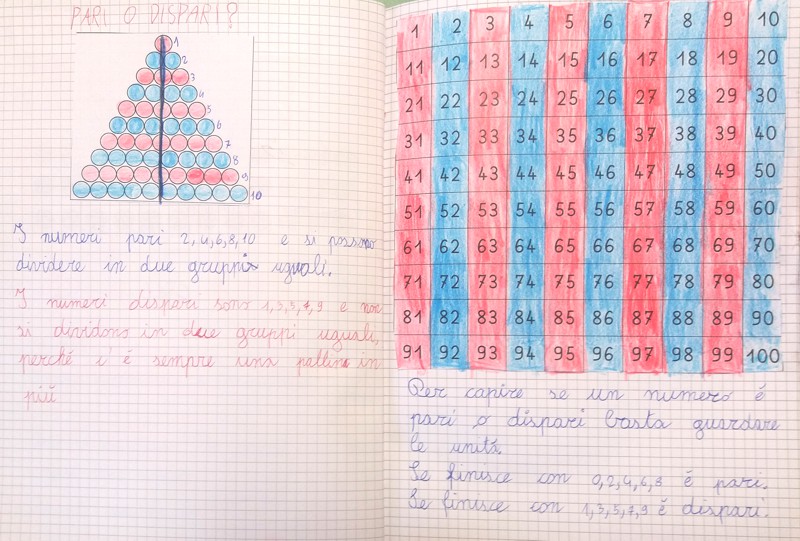 PARI O DISPARI?
1
2
3
4
5
6
7
8
9
10
I numeri pari 2,4,6,8,10 e si possono
dividere in due gruppi uguali.
I numeri dispari sono 1,3,5,7,9 e non
si dividono in due gruppi uguali,
perché c'è sempre una pallina in
più
1 2 3 4 5 6 7 8 9 10
11 12 13 14 15 16 17 18 19 20
21 22 23 24 25 26 27 28 29 30
31 32 33 34 35 36 37 38 39 40
41 42 43 44 45 46 47 48 49 50
51 52 53 54 55 56 57 58 59 60
61 62 63 64 65 66 67 68 69 70
71 72 73 74 75 76 77 78 79 80
81 82 83 84 85 86 87 88 89 90
91 92 93 94 95 96 97 98 99 100
Per capire se un numero è
pari o dispari basta guardare
le unità.
Se finisce con 0,2,4,6,8 è pari.
Se finisce con 1,3,5,7,9 è dispari.